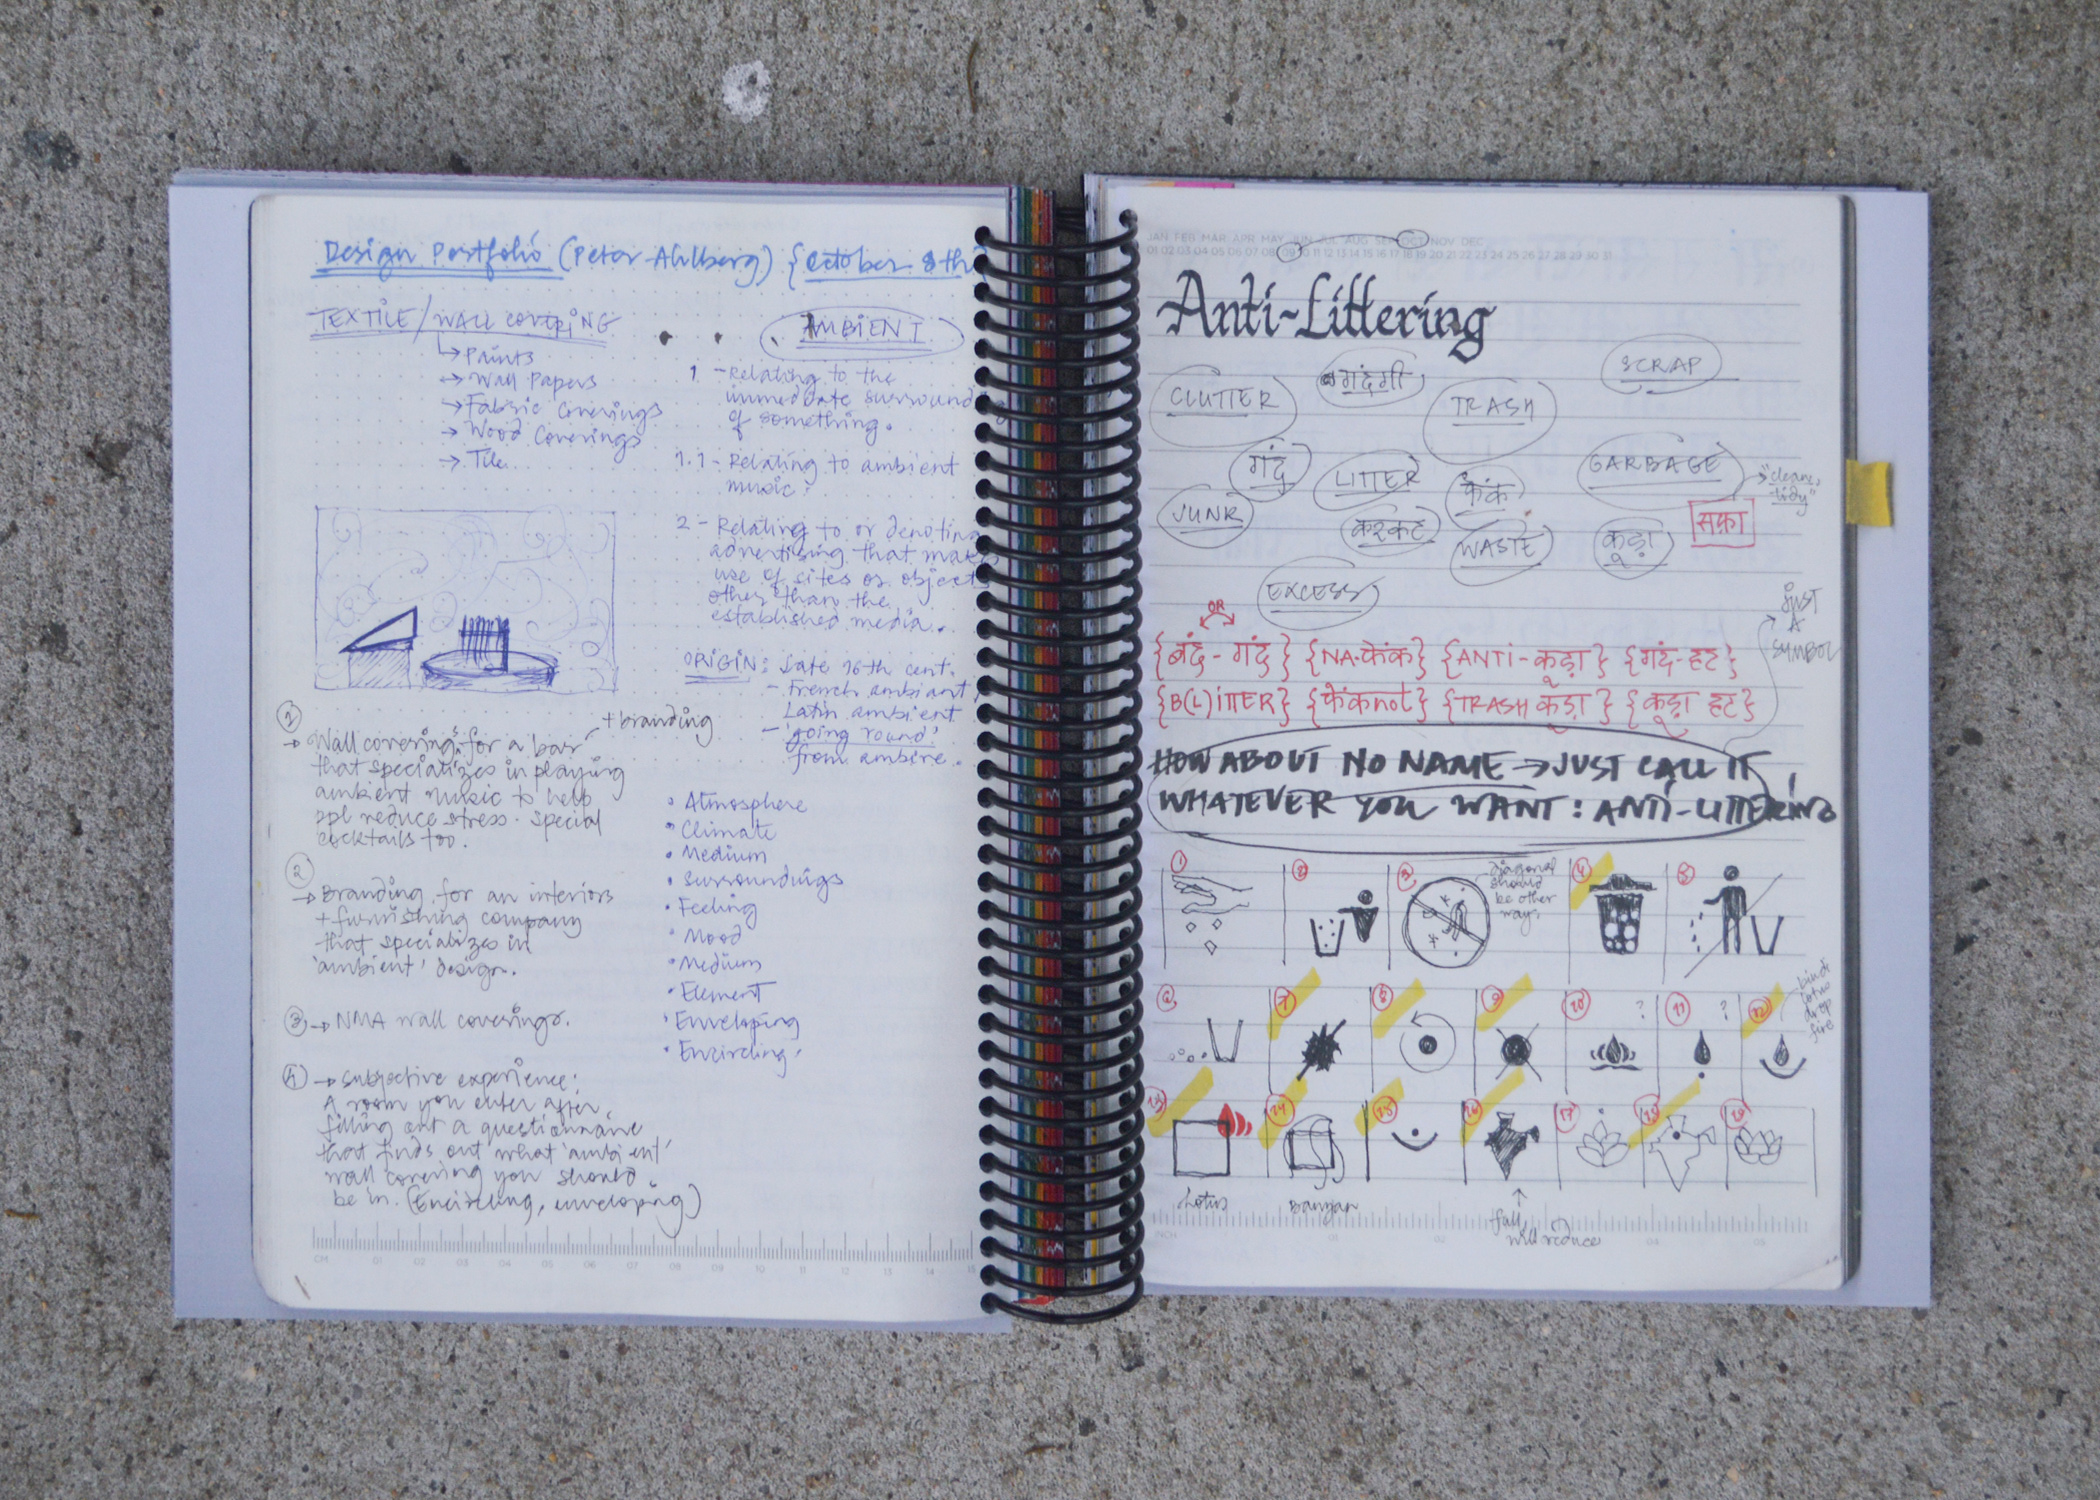 Design Portfolio (Peter Ahlberg) {October 8th}
TEXTILE / WALL COVERING
↳ Paints
→ Wall Papers
→ Fabric Coverings
→ Wood Coverings
→ Tile
AMBIENT
1 - Relating to the
immediate surrounding
of something.
1.1 - Relating to ambient
music.
2 - Relating to or denoting
advertising that makes
use of sites or objects
other than the
established media.
ORIGIN: Late 16th cent.
- French ambiant,
Latin ambient
- 'going round'
from ambire.
• Atmosphere
• Climate
• Medium
• Surroundings
• Feeling
• Mood
• Medium
• Element
• Enveloping
• Encircling.
1
+ branding
→ Wall covering for a bar
that specializes in playing
ambient music to help
ppl reduce stress. special
cocktails too.
2
→ Branding for an interiors
+ furnishing company
that specializes in
'ambient' design.
3 → NMA wall coverings.
4 → subjective experience:
A room you enter after
filling out a questionnaire
that finds out what 'ambient'
wall covering you should
be in. (Encircling, enveloping)
CM 01 02 03 04 05 06 07 08 09 10 11 12 13 14 15
JAN FEB MAR APR MAY JUN JUL AUG SEP OCT NOV DEC
01 02 03 04 05 06 07 08 09 10 11 12 13 14 15 16 17 18 19 20 21 22 23 24 25 26 27 28 29 30 31
Anti-Littering
CLUTTER
गंदगी
TRASH
SCRAP
गंद
LITTER
फेंक
GARBAGE
"clean,
tidy"
JUNK
करकट
WASTE
कूड़ा
सफ़ा
EXCESS
OR
JUST
A
SYMBOL
{बंद - गंद} {NA-फेंक} {ANTI-कूड़ा} {गंद-हट}
{B(L)ITTER} {फेंकnot} {TRASH कूड़ा} {कूड़ा हट}
HOW ABOUT NO NAME → JUST CALL IT
WHATEVER YOU WANT: ANTI-LITTERING
1 2 3 4 5
diagonal
should
be other
way.
6 7 8 9 10 ? 11 ? 12
bindi
lotus
drop
fire
13 14 15 16 17 18 19
Lotus
Banyan
full,
will reduce
INCH 01 02 04 05